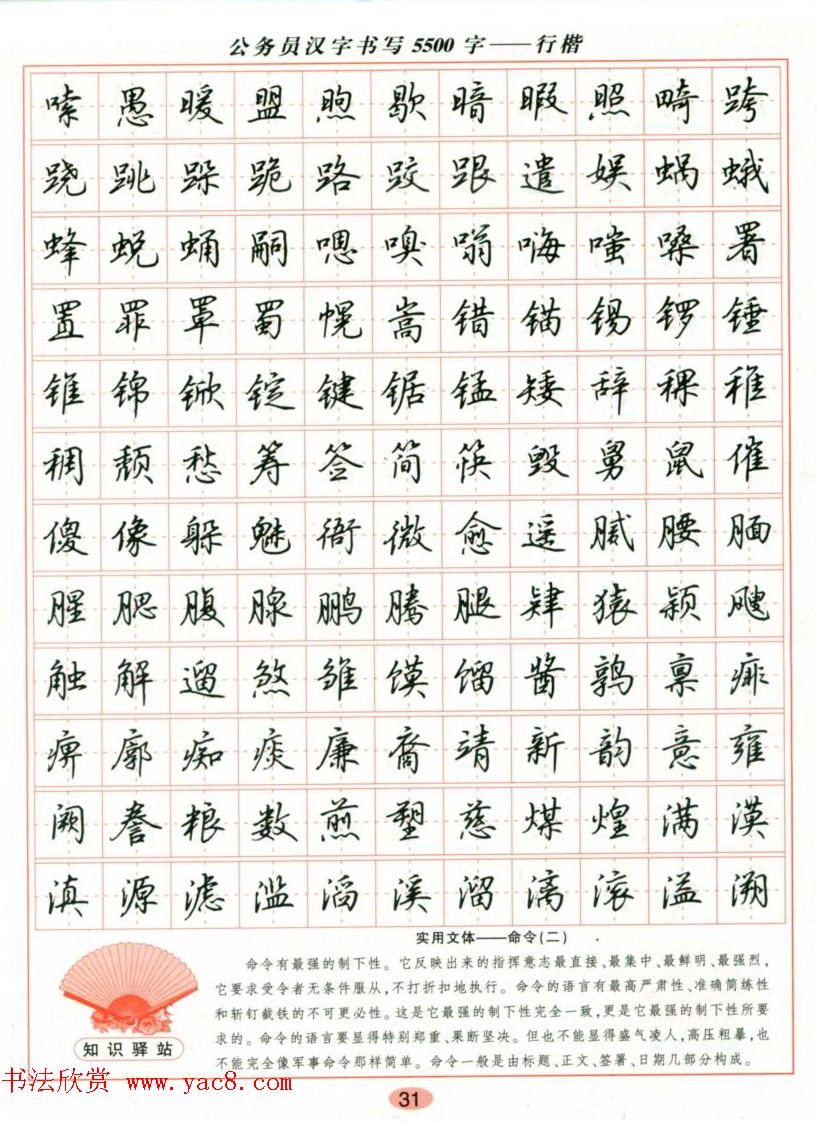 公务员汉字书写5500字——行楷
嗦愚暖盟煦歇暗暇照畸跨
跷跳跺跪路跤跟遣娱蜗蛾
蜂蜕蛹嗣嗯嗅嗡嗨嗤嗓署
置罪罩蜀幌嵩错锚锡锣锤
锥锦锨锭键锯锰矮辞稞稚
稠颓愁筹签简筷毁舅鼠催
傻像躲魅衙微愈遥腻腰腼
腥腮腹腺鹏腾腿肄猿颖飕
触解遛煞雏馍馏酱鹑禀痱
痹廓痴痰廉裔靖新韵意雍
阙誊粮数煎塑慈煤煌满漠
滇源滤滥滔溪溜漓滚溢溯
实用文体——命令(二)
命令有最强的制下性。它反映出来的指挥意志最直接、最集中、最鲜明、最强烈，
它要求受令者无条件服从,不打折扣地执行。命令的语言有最高严肃性、准确简练性
和斩钉截铁的不可更必性。这是它最强的制下性完全一致,更是它最强的制下性所要
求的。命令的语言要显得特别郑重、果断坚决。但也不能显得盛气凌人,高压粗暴,也
不能完全像军事命令那样简单。命令一般是由标题、正文、签署、日期几部分构成。
知识驿站
书法欣赏 www.yac8.com
31